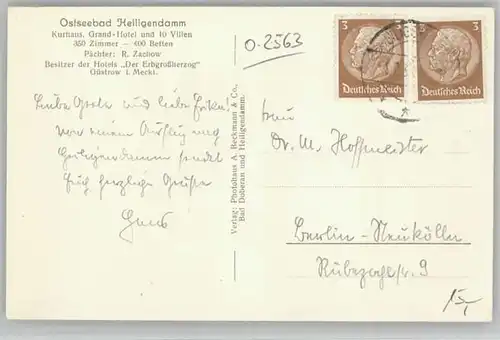 Ostseebad Heiligendamm
Kurhaus, Grand-Hotel und 10 Villen
350 Zimmer — 400 Betten
Pächter: R. Zachow
Besitzer der Hotels „Der Erbgroßherzog"
Güstrow i. Meckl.
0-2563
Liebe Grete und liebe Erika!
von einem Ausflug nach
Heiligendamm sendet
Euch herzliche Grüße
Hans
Verlag: Photohaus A. Beckmann & Co.,
Bad Doberan und Heiligendamm.
3
Deutsches Reich
3
Deutsches Reich
Frau
Dr. M. Hoffmeister
Berlin-Neukölln
Rübezahlstr. 9
15,-